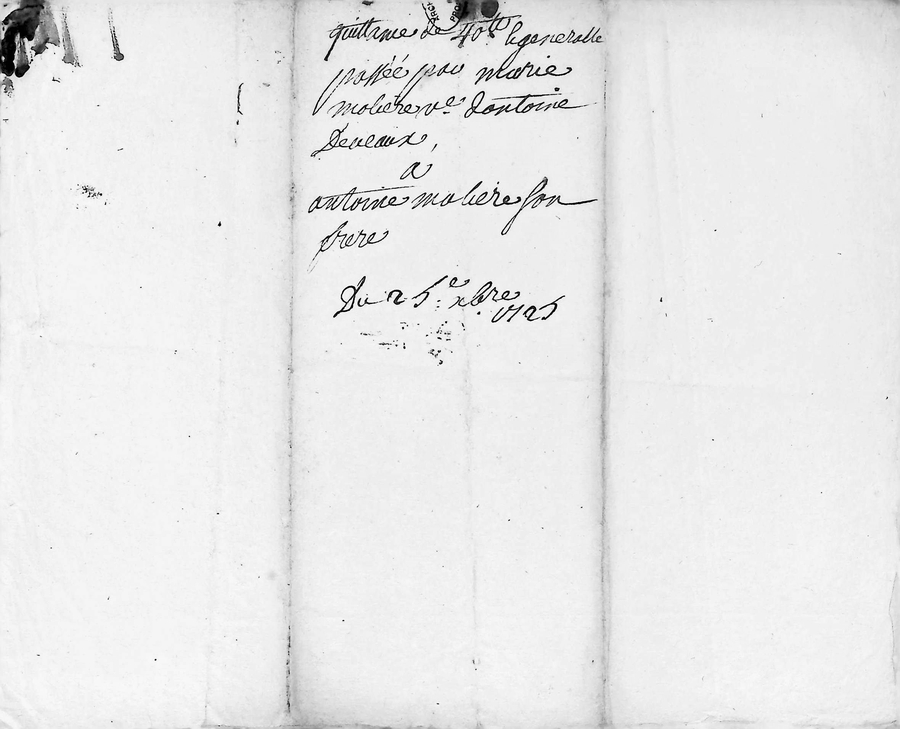 quittance de 40ᵗᵗ & generalle
passée par marie
moliere vᵉ. dantoine
Deveaux,
a
antoine moliere son
frere
Du 25ᵉ. xbre
1725